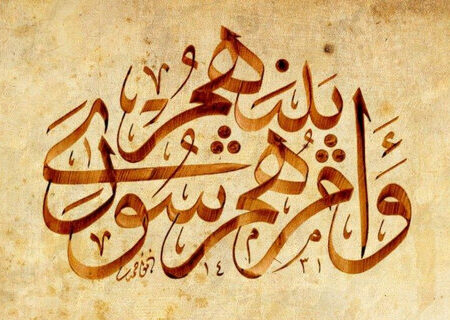 وَأَمْرُهُمْ شُورَى بَيْنَهُمْ
١٤٣١